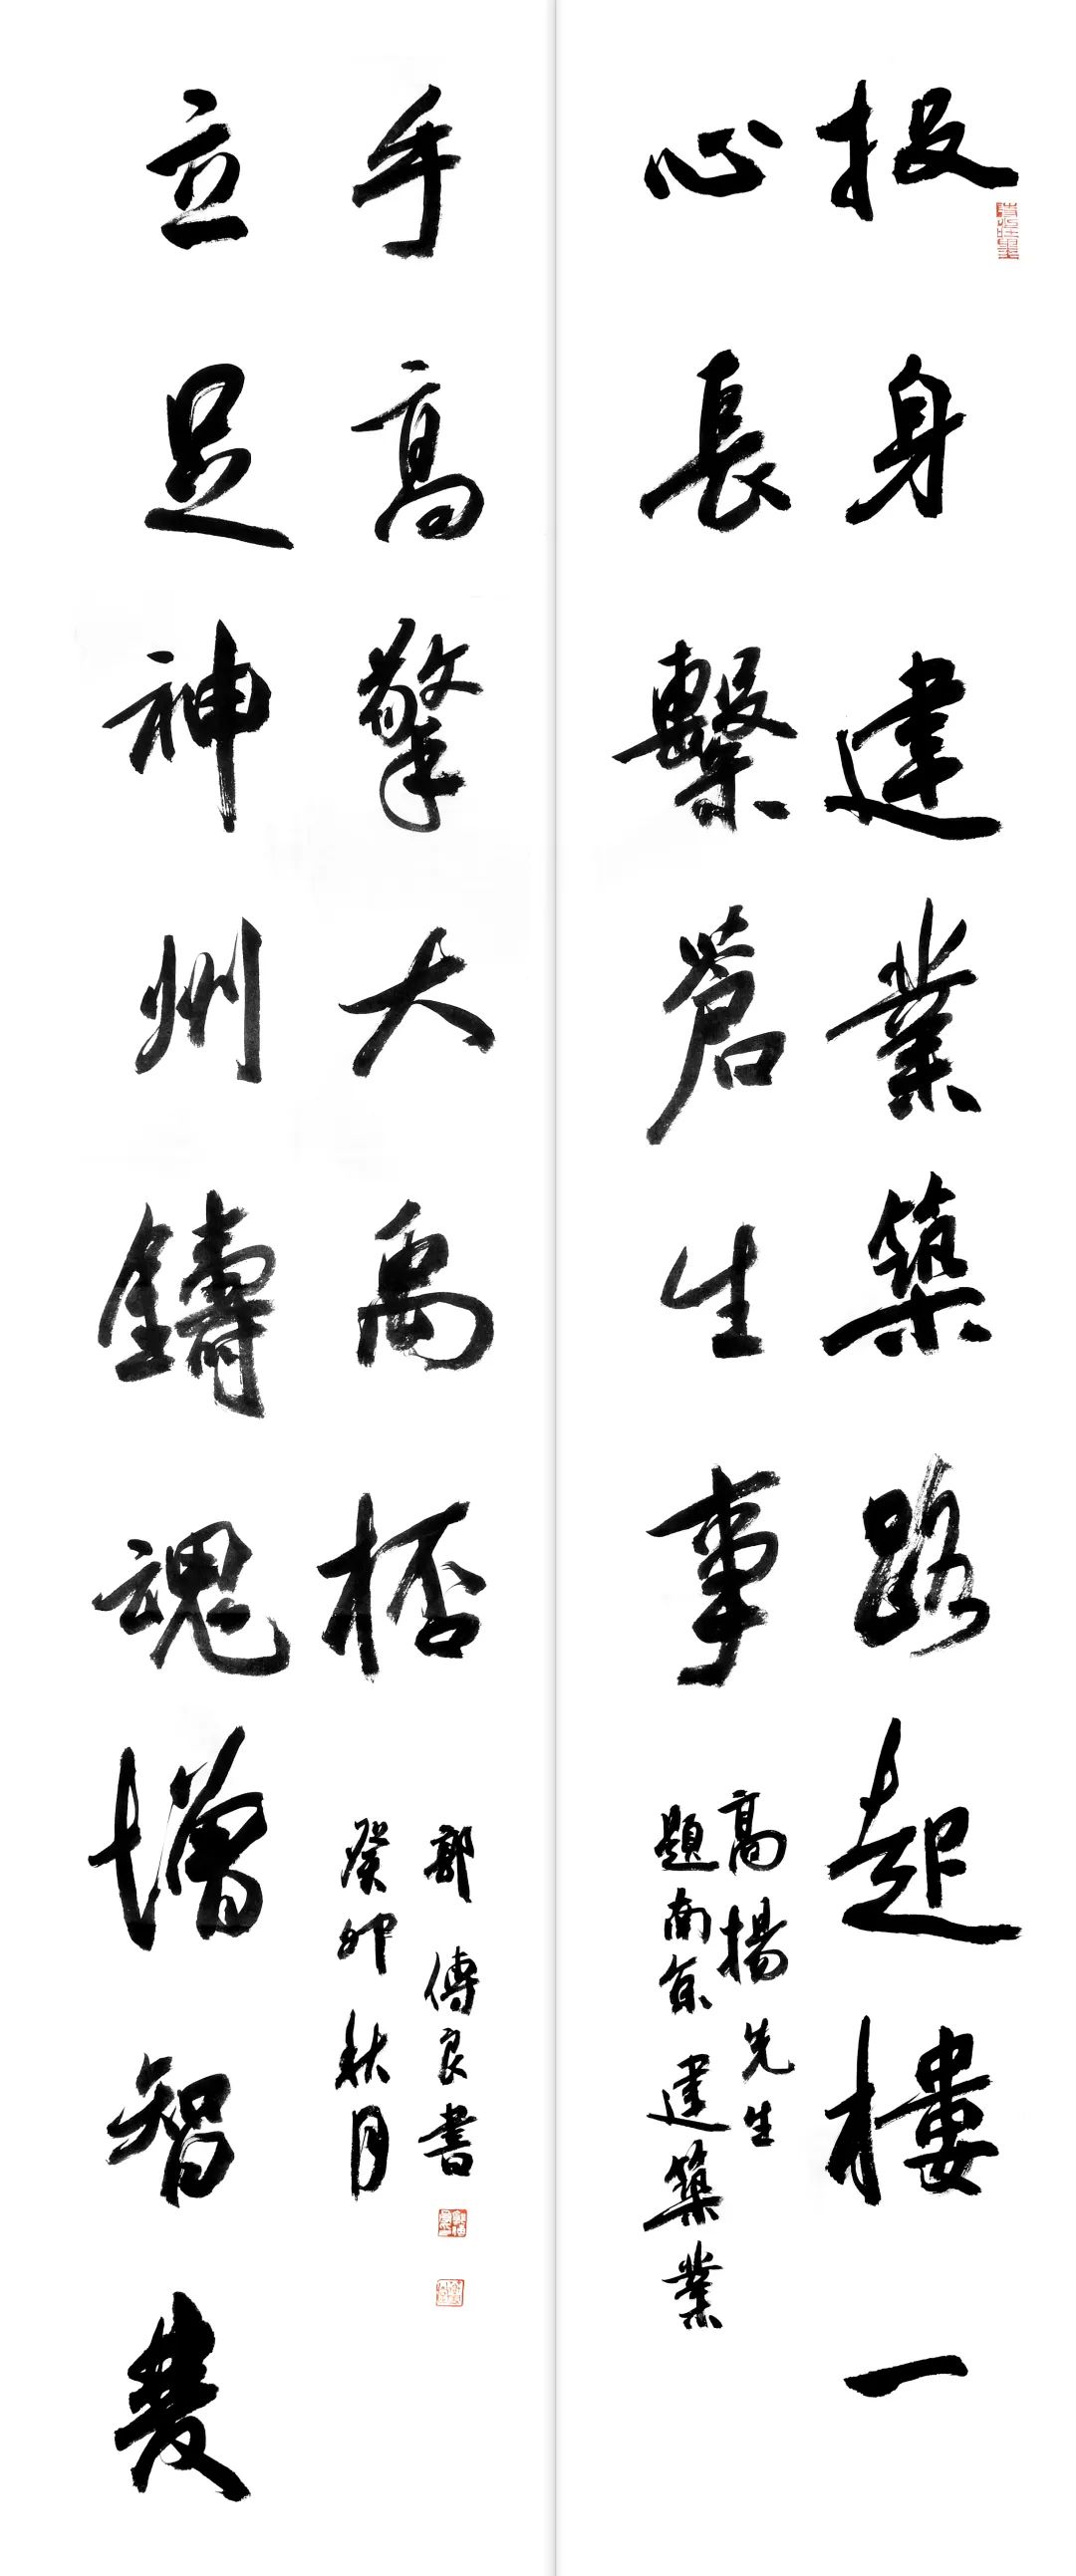 投身建業築路起樓一
心長繫蒼生事
高揚先生
題南京建築業
立足神州鑄魂增智雙
手高擎大禹桮
癸卯秋月
郭傳良書